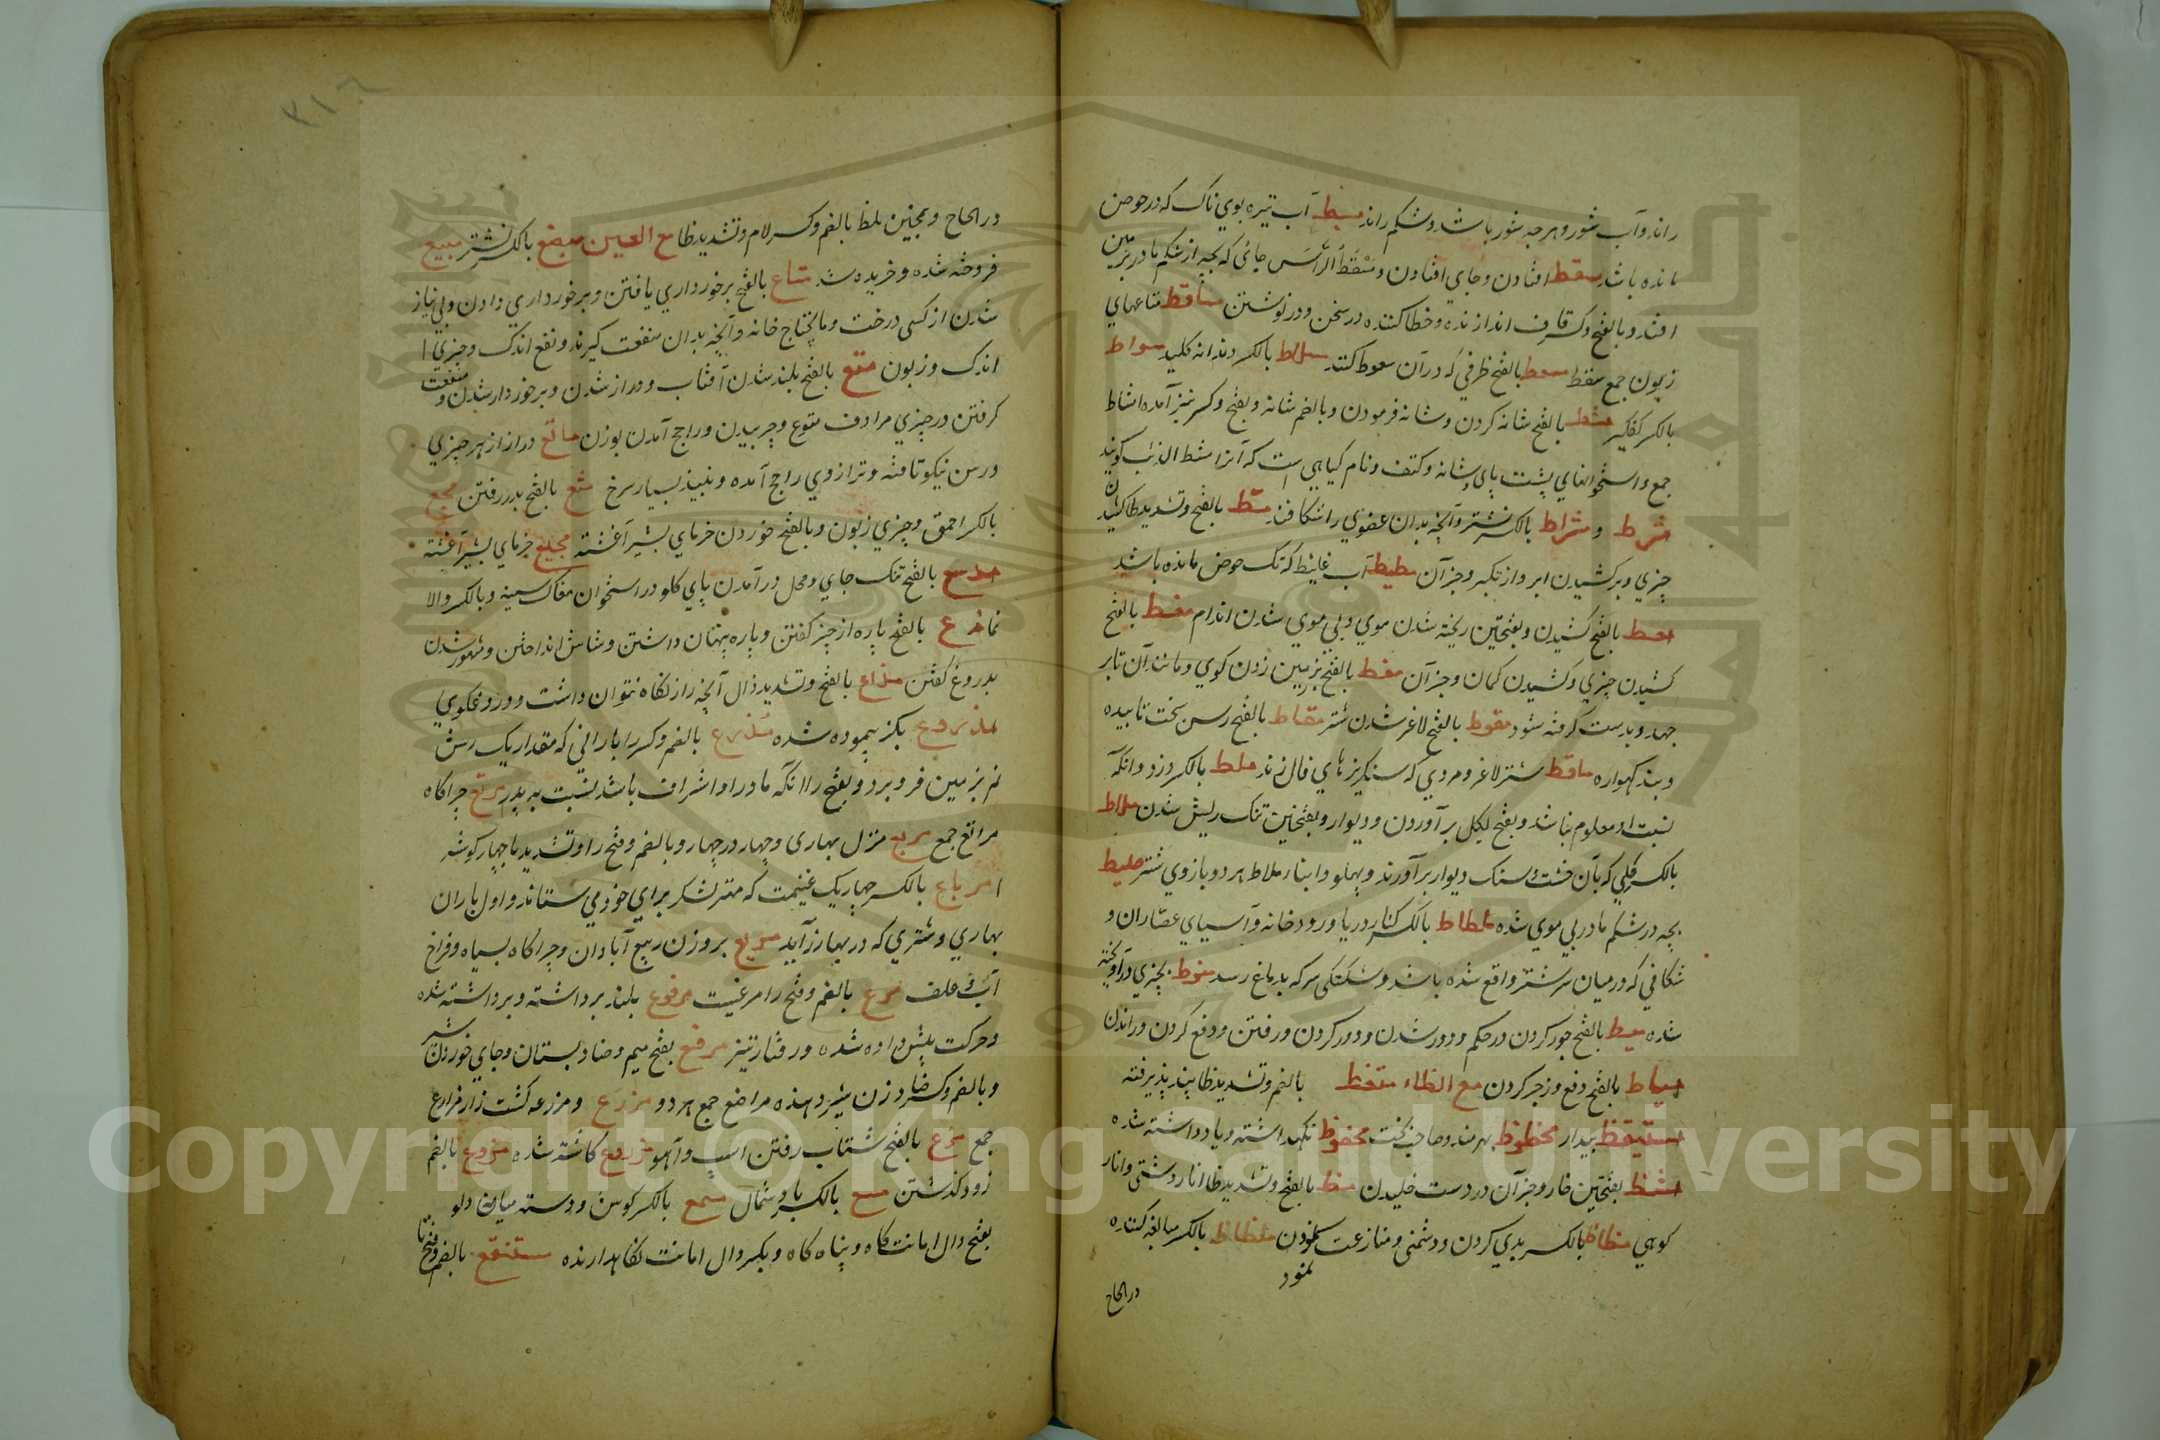 راند و آب شور و هرچه شور باشد و شکم راند مسبط آب تیره بوی ناک که در حوض
مانده باشد مسقط افتادن و جای افتادن و مَسْقَطُ الرّأس جائی که بچه از شکم مادر بزمین
افتد و بالفتح وکسر قاف اندازنده و خطا کننده در سخن و در نوشتن مساقط متاعهای
زبون جمع سقط مسعط بالفتح ظرفی که در آن سعوط کنند مسلاط بالکسر دندانه کلید مسواط
بالکسر کفگیر مشط بالفتح شانه کردن و شانه فرمودن و بالضم شانه و بفتح و کسر نیز آمده امشاط
جمع و استخوانهای پشت پای و شانه و کتف و نام گیاهی است که آنرا مشط الذئب گویند
مشرط و مشراط بالکسر نشتر و آنچه بدان عضوی را شکافند مط بالفتح و تشدید طا کشیدن
چیزی و برکشیدن ابرو از تکبر و جز آن مطیطة آب غلیظ که تک حوض مانده باشد
معط بالفتح کشیدن و بفتحتین ریخته شدن موی و بی موی شدن اندام مغط بالفتح
کشیدن چیزی و کشیدن کمان و جز آن مقط بالفتح بزمین زدن گوی و مانند آن تا بر
جهد و بدست گرفته شود مقوط بالفتح لاغر شدن شتر مقاط بالفتح رسن سخت تابیده
و بند گهواره ماقط شتر لاغر و مردی که سنگریزهای فال زند ملط بالکسر دزد و آنکه
نسبت او معلوم نباشد و بفتح بگل بر آوردن دیوار و بفتحتین تنک ریش شدن ملاط
بالکسر گلی که بآن خشت و سنک دیوار بر آورند و پهلو و ابناء ملاط هر دو بازوی شتر ملیط
بچه در شکم مادر بی موی شده ملطاط بالکسر کنار دریا و رودخانه و آسیای عصاران و
شکافی که در میان سر شتر واقع شده باشد و شکستگی سر که بدماغ رسد منوط بچیزی در آویخته
شده میط بالفتح جور کردن در حکم و دور شدن و دور کردن و رفتن و دفع کردن و راندن
میاط بالفتح دفع و زجر کردن مع الظاء متعظ بالضم و تشدید ظا پند پذیرفته
مستیقظ بیدار محظوظ بهرمند و صاحب بخت محفوظ نگهداشته و یاد داشته شده
مشظ بفتحتین خار و جز آن در دست خلیدن مظ بالفتح و تشدید ظا انار دشتی و انار
کوهی مظاظ بالکسر بدی کردن و دشمنی و منازعت نمودن ملظاظ بالکسر مبالغه کننده
نمود
در الحاح
۳۱۶
در الحاح و همچنین ملظ بالضم و کسر لام و تشدید ظا مع العین مبضع بالکسر نشتر مبیع
فروخته شده و خریده شده متاع بالفتح برخورداری یافتن و برخورداری دادن و بی نیاز
شدن از کسی درخت و مایحتاج خانه و آنچه بدان منفعت گیرند و نفع اندک و چیزی
اندک و زبون متع بالفتح بلند شدن آفتاب و دراز شدن و برخوردار شدن و منفعت
گرفتن در چیزی مرادف متوع و چربیدن و راجح آمدن بوزن ماتع دراز از هر چیزی
و رسن نیکو تافته و ترازوی راجح آمده و نبیذ بسیار سرخ مثع بالفتح بدر رفتن مجع
بالکسر احمق و چیزی زبون و بالفتح خوردن خرمای بشیر آغشته مجیع خرمای بشیر آغشته
مدسع بالفتح تنک جای و محل در آمدن پای گلو در استخوان مغاک سینه و بالکسر والا
نما مذع بالفتح پاره از چیز گفتن و پاره پنهان داشتن و شاش انداختن و مشهور شدن
بدروغ گفتن مذاع بالفتح و تشدید ذال آنچه راز نگاه نتوان داشت و دروغگوی
مذروع بگز پیموده شده مذرع بالضم و کسر را بارانی که مقدار یک رش
نم بزمین فرو برد و بفتح را آنکه مادر او اشراف باشد نسبت به پدر مرتع چراگاه
مراتع جمع مربع منزل بهاری و چهار در چهار و بالضم و فتح را و تشدید با چهار گوشه
مرباع بالکسر چهار یک غنیمت که مهتر لشکر برای خود می ستاند و اول باران
بهاری و شتری که در بهار زاید مریع بر وزن ربیع آبادان و چراگاه بسیاه و فراخ
آب و علف مرع بالضم و فتح را مرغیست مرفوع بلند برداشته و برداشته شده
و حرکت پیش داده شده و رفتار تیز مرضع بفتح میم و ضاد پستان و جای خوردن شیر
و بالضم و کسر ضاد زن شیر دهنده مراضع جمع هر دو مزرع و مزرعه کشت زار مزارع
جمع مزع بالفتح شتاب رفتن اسپ و آهو مزروع کاشته شده مزوع بالضم
زود گذشتن مسع بالکسر باد شمال مسمع بالکسر گوش و دسته میان دلو
بفتح دال امانت گاه و پناه گاه و بکسر دال امانت نگاهدارنده مستنقع بالضم و فتح تا